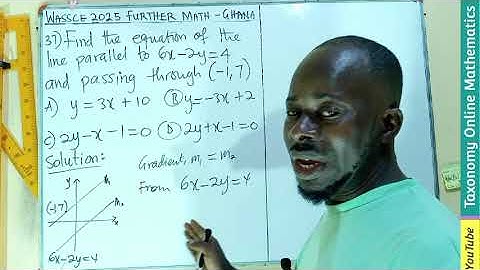 WASSCE 2025 FURTHER MATH - GHANA
37) Find the equation of the
line parallel to 6x-2y=4
and passing through (-1,7)
A) y=3x+10 B) y=-3x+2
C) 2y-x-1=0 D) 2y+x-1=0
Solution:
Gradient, m₁ = m₂
From 6x-2y=4
y
M₁
M₂
(-1,7)
x
6x-2y=4
Taxonomy Online Mathematics
YouTube